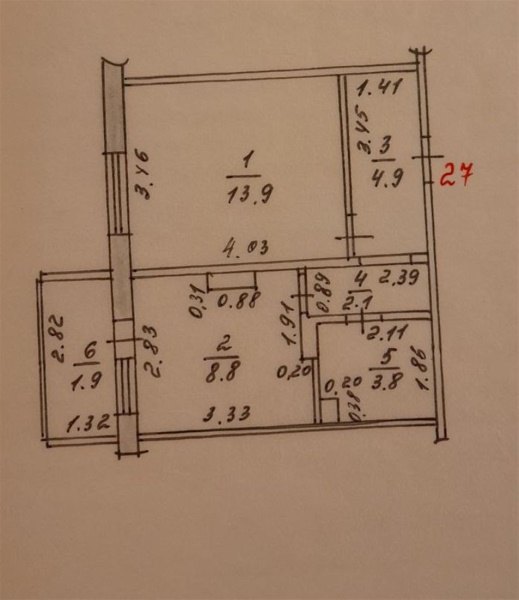 1.41
3.45
3
4.9
27
3.46
1
13.9
4.03
0.31
0.88
0.89
4
2.1
2,39
2.82
6
1.9
1.32
2.83
2
8.8
3.33
1.91
0,20
2.11
5
3.8
1.86
0.20
0.38